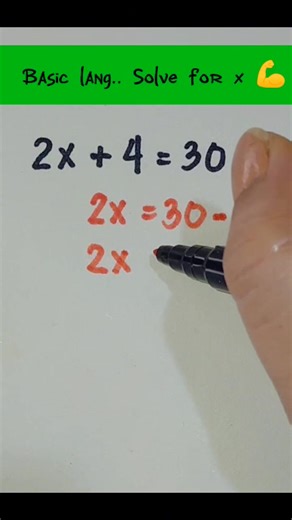 Basic lang.. Solve for x 💪
2x + 4 = 30
2x = 30 -
2x